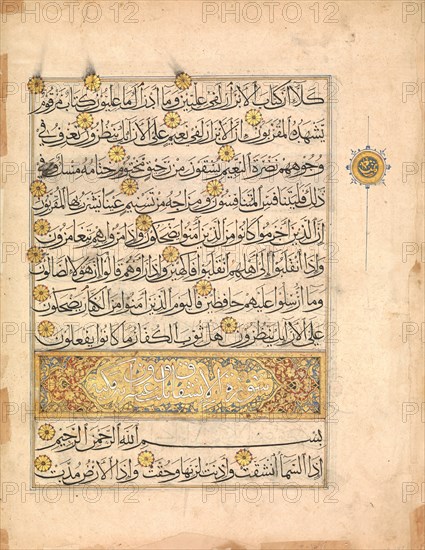 كلا ان كتاب الابرار لفي عليين وما ادريك ما عليون كتاب مرقوم
يشهده المقربون ان الابرار لفي نعيم على الارائك ينظرون تعرف في
وجوههم نضرة النعيم يسقون من رحيق مختوم ختامه مسك وفي
ذلك فليتنافس المتنافسون ومزاجه من تسنيم عينا يشرب بها المقربون
ان الذين اجرموا كانوا من الذين امنوا يضحكون واذا مروا بهم يتغامزون
واذا انقلبوا الى اهلهم انقلبوا فاكهين واذا راوهم قالوا ان هؤلاء لضالون
وما ارسلوا عليهم حافظين فاليوم الذين امنوا من الكفار يضحكون
على الارائك ينظرون هل ثوب الكفار ما كانوا يفعلون
سورة الانشقاق
بسم الله الرحمن الرحيم
اذا السماء انشقت واذنت لربها وحقت واذا الارض مدت
PHOTO12